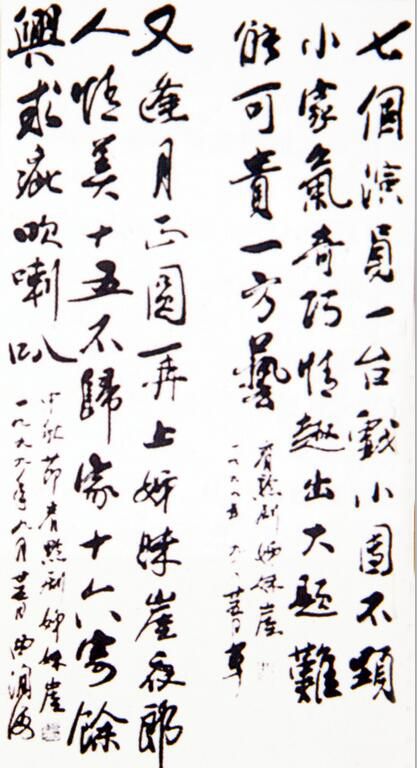 七個演員一台戲小團不顯
小家氣奇巧情趣出大題難
能可貴一方藝
看黔劇姊妹崖
一九九九年九月廿五日草
又逢月正圓再上姊妹崖夜郎
人情美十五不歸家十六寄餘
興求疵吹喇叭
中秋節看黔劇姊妹崖
一九九九年九月廿五日曲润海